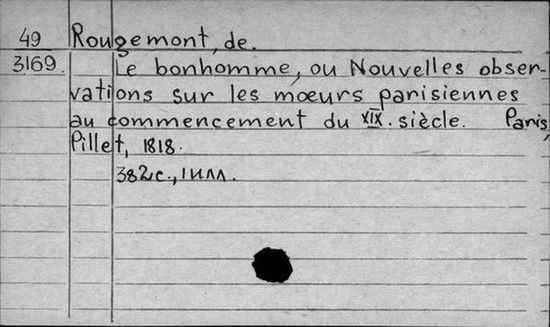 49 Rougemont, de.
3169. Le bonhomme, ou Nouvelles obser-
vations sur les mœurs parisiennes
au commencement du XIX. siècle. Paris,
Pillet, 1818.
382 с., 1 илл.